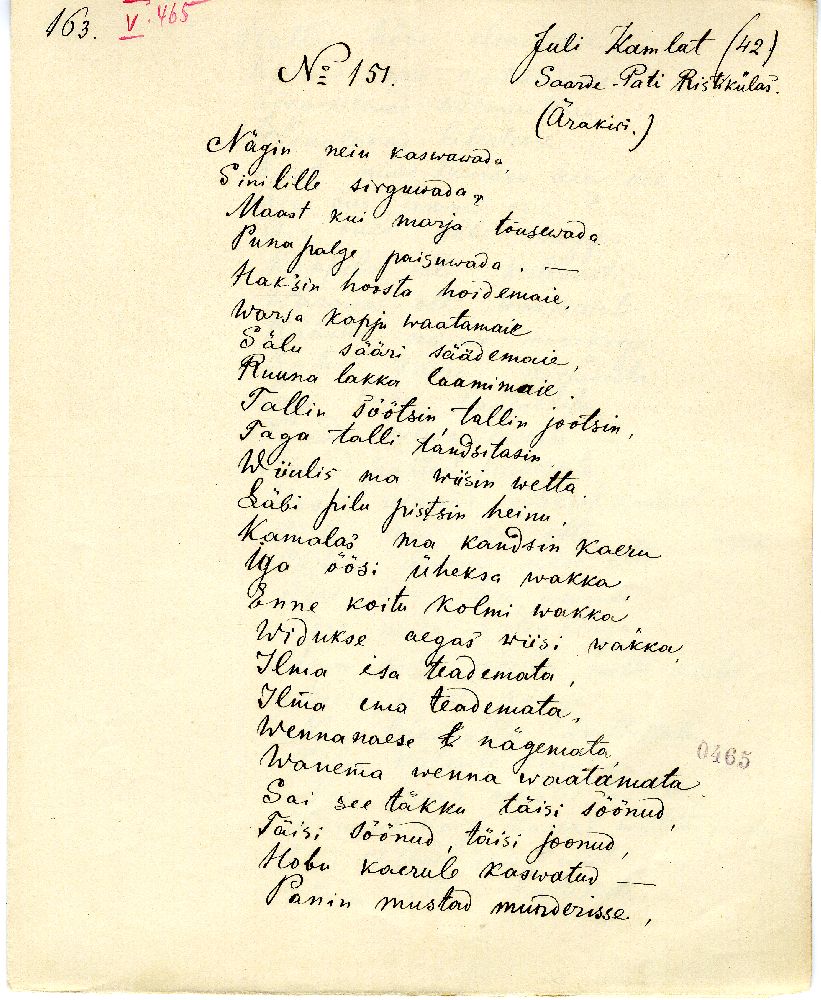 163.
V. 465
Juli Kamlat (42)
Saarde-Pati Ristikülas.
(Ärakiri.)
No 151.
Nägin neiu kaswawada,
Sinilille sirguwada,
Maast kui marja tõusewada
Puna palge paisuwada. —
Hak'sin hoosta hoidemaie,
Warsa kapju waatamaie
Sälu sääri säädemaie,
Ruuna lakka laamimaie.
Tallin söötsin, tallin jootsin,
Taga talli tandsitasin
Wiiulis ma wiisin wetta.
Läbi pilu pistsin heinu,
Kamalas ma kandsin kaeru
Iga öösi üheksa wakka,
Enne koitu kolmi wakka
Widukse aegas wiisi wakka,
Ilma isa teademata,
Ilma ema teademata,
Wennanaese nägemata,
Wanema wenna waatamata
Sai see täkku täisi söönud,
Täisi söönud, täisi joonud,
Hobu kaerule kaswatud —
Panin mustad munderisse,
0465